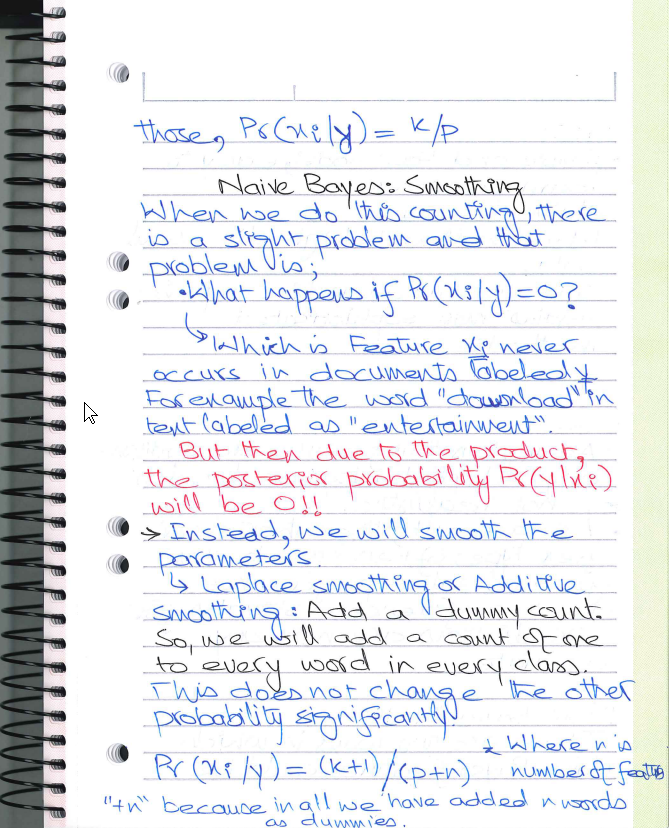 those, Pr(xi/y) = k/p
Naive Bayes: Smoothing
When we do this counting, there
is a slight problem and that
problem is;
•What happens if Pr(xi/y)=0?
↳Which is Feature xi never
occurs in documents labeled y
For example the word "download" in
text labeled as "entertainment".
But then due to the product,
the posterior probability Pr(y/xi)
will be 0!!
→ Instead, we will smooth the
parameters.
↳ Laplace smoothing or Additive
smoothing: Add a dummy count.
So, we will add a count of one
to every word in every class.
This does not change the other
probability significantly.
Pr(xi/y) = (k+1)/(p+n) * Where n is
number of features
"+n" because in all we have added n words
as dummies.